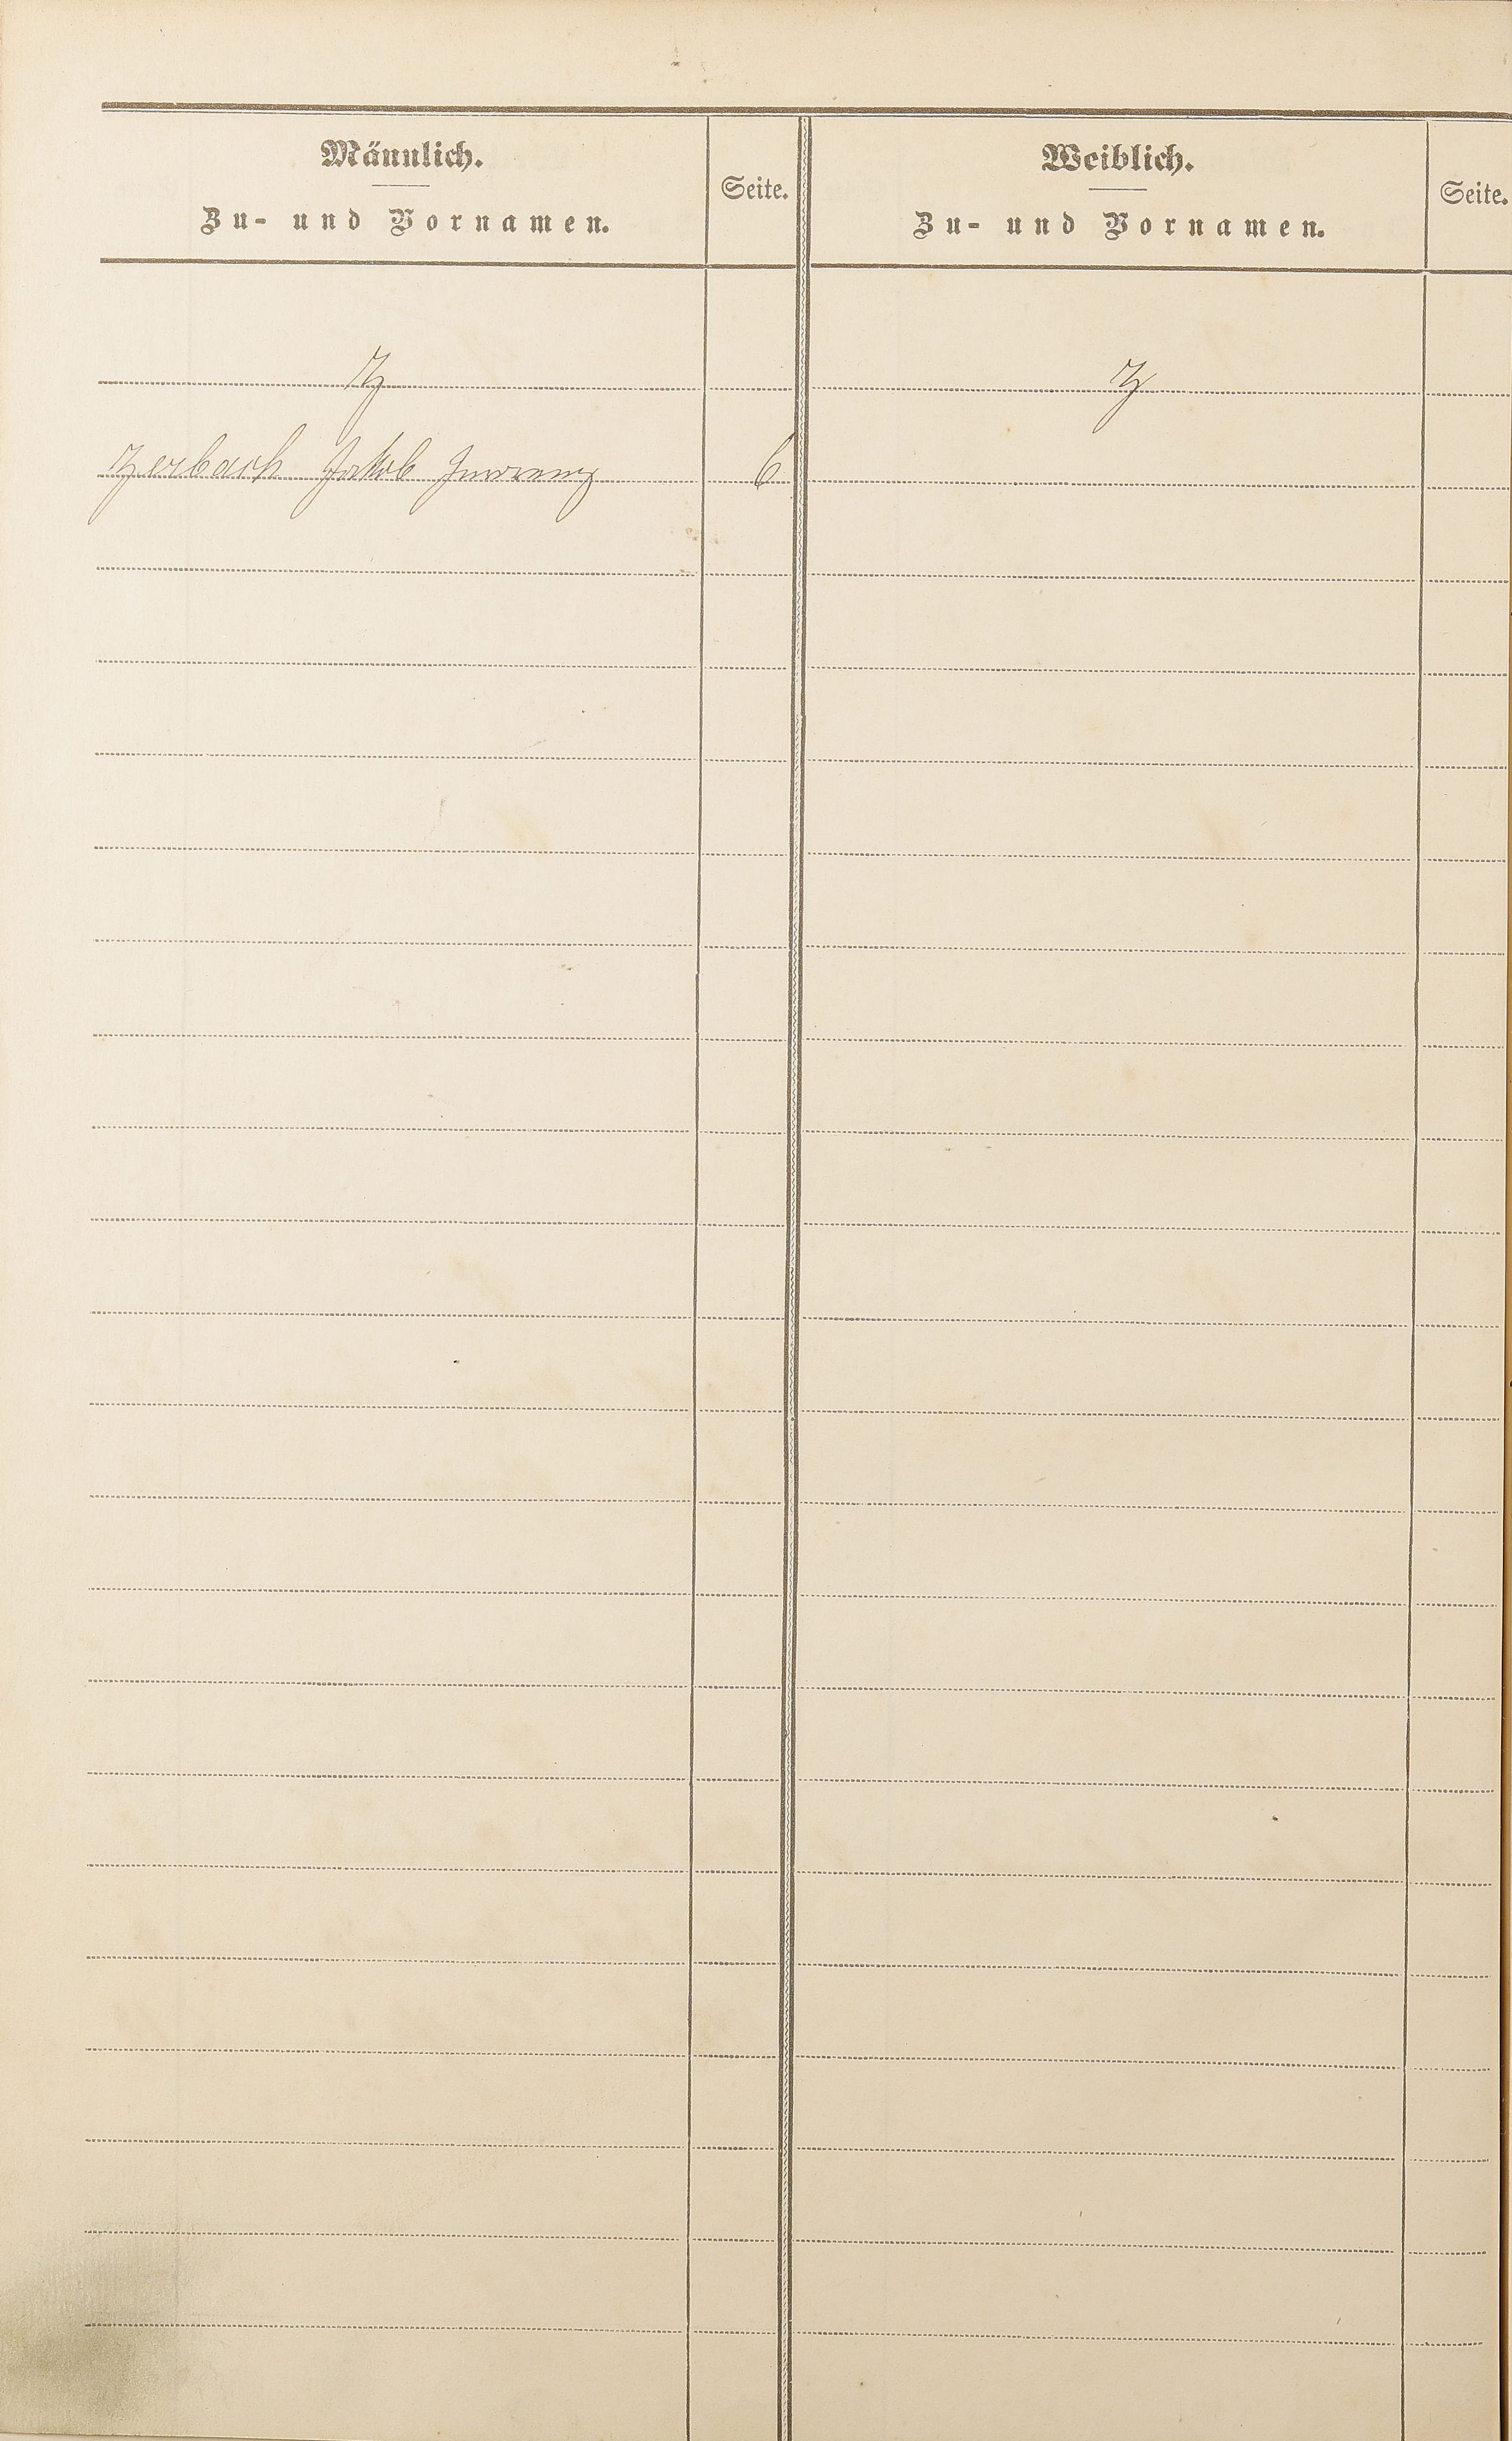 Männlich.
Zu- und Vornamen.
Seite.
Weiblich.
Zu- und Vornamen.
Seite.
Z
Z
Zerbach Jakob
6